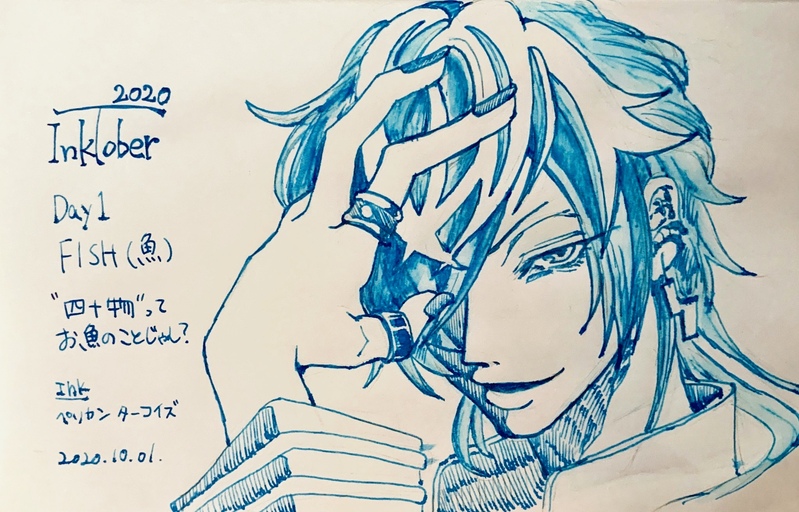 2020
Inktober
Day 1
FISH (魚)
"四十物"って
お魚のことじゃん?
Ink
ペリカン ターコイズ
2020.10.01.